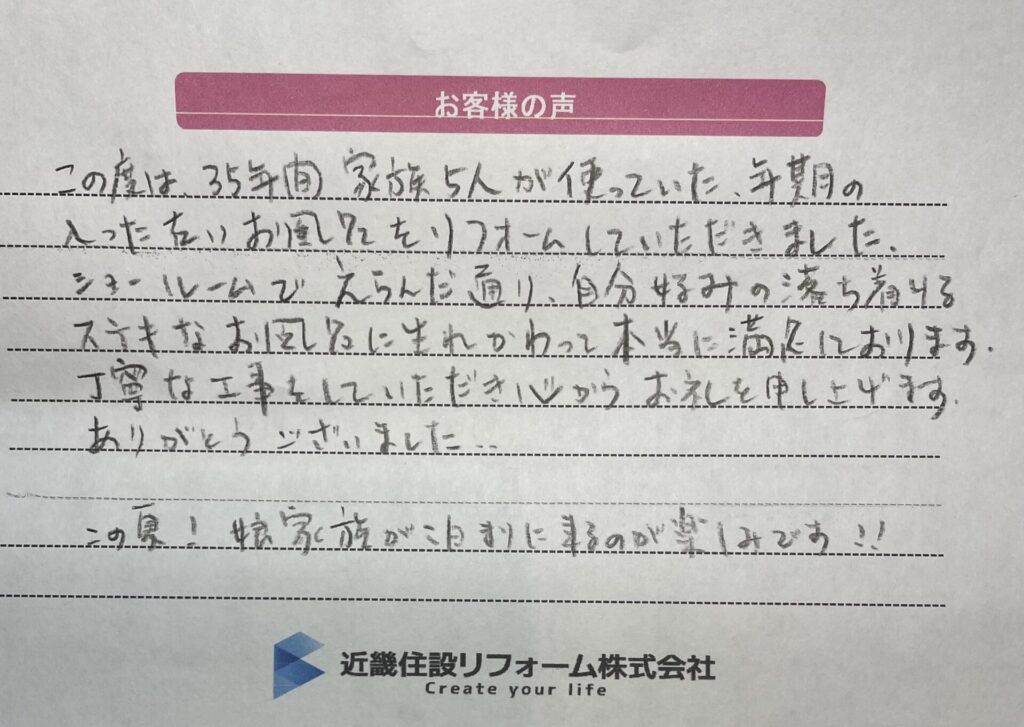 お客様の声
この度は、35年間 家族5人が使っていた、年期の
入った古いお風呂をリフォームしていただきました。
ショールームでえらんだ通り、自分好みの落ち着ける
ステキなお風呂に生れかわって本当に満足しております。
丁寧な工事をしていただき心からお礼を申し上げます。
ありがとうございました..
この夏！娘家族が泊まりに来るのが楽しみです!!
近畿住設リフォーム株式会社
Create your life